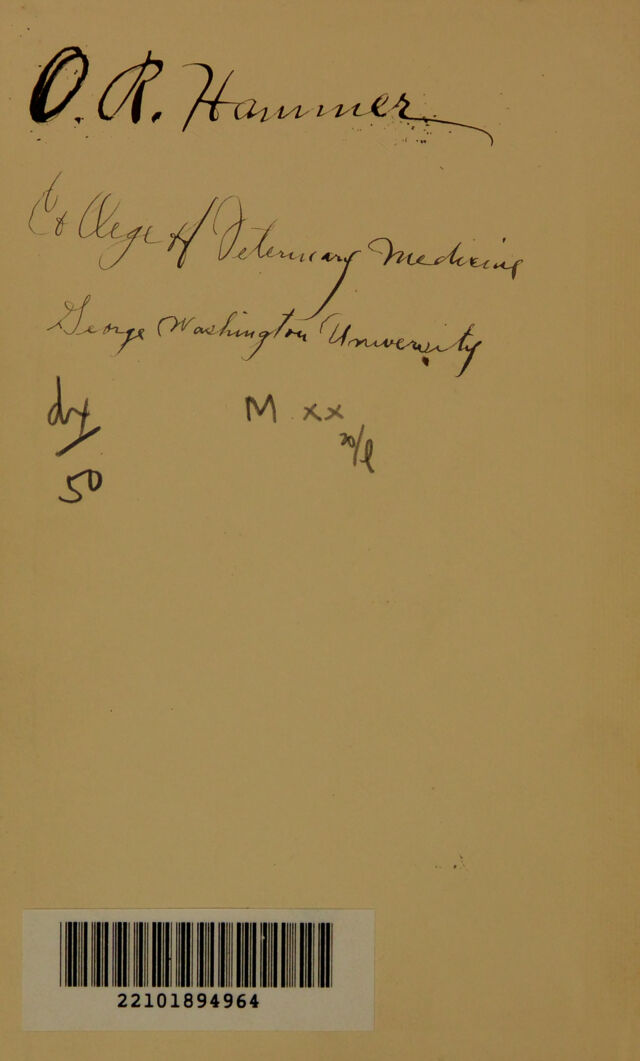 O. R. Hammer
College of Veterinary Medicine
George Washington University
M xx
50
22101894964